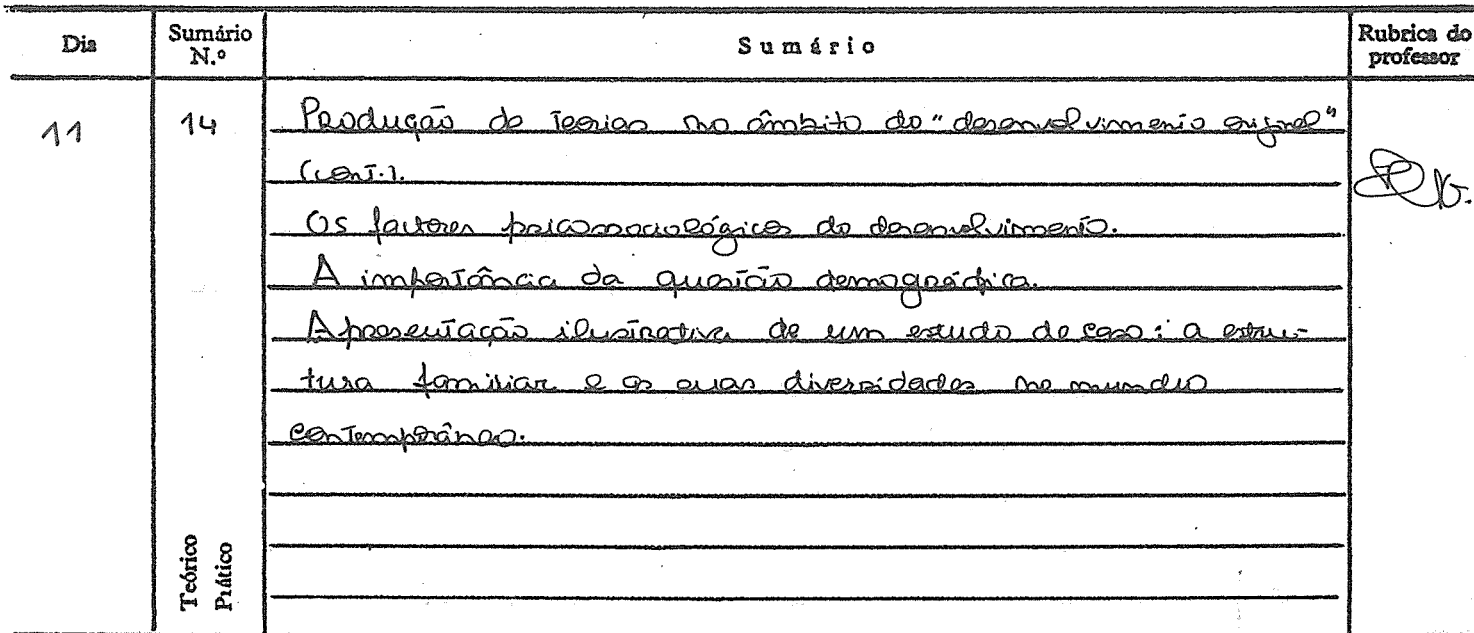 Dia
Sumário N.º
Sumário
Rubrica do professor
11
14
Produção de Teorias no âmbito do "desenvolvimento original"
(cont.).
Os factores psicossociológicos do desenvolvimento.
A importância da questão demográfica.
Apresentação ilustrativa de um estudo de caso: a estru-
tura familiar e as suas diversidades no mundo
contemporâneo.
Teórico
Prático